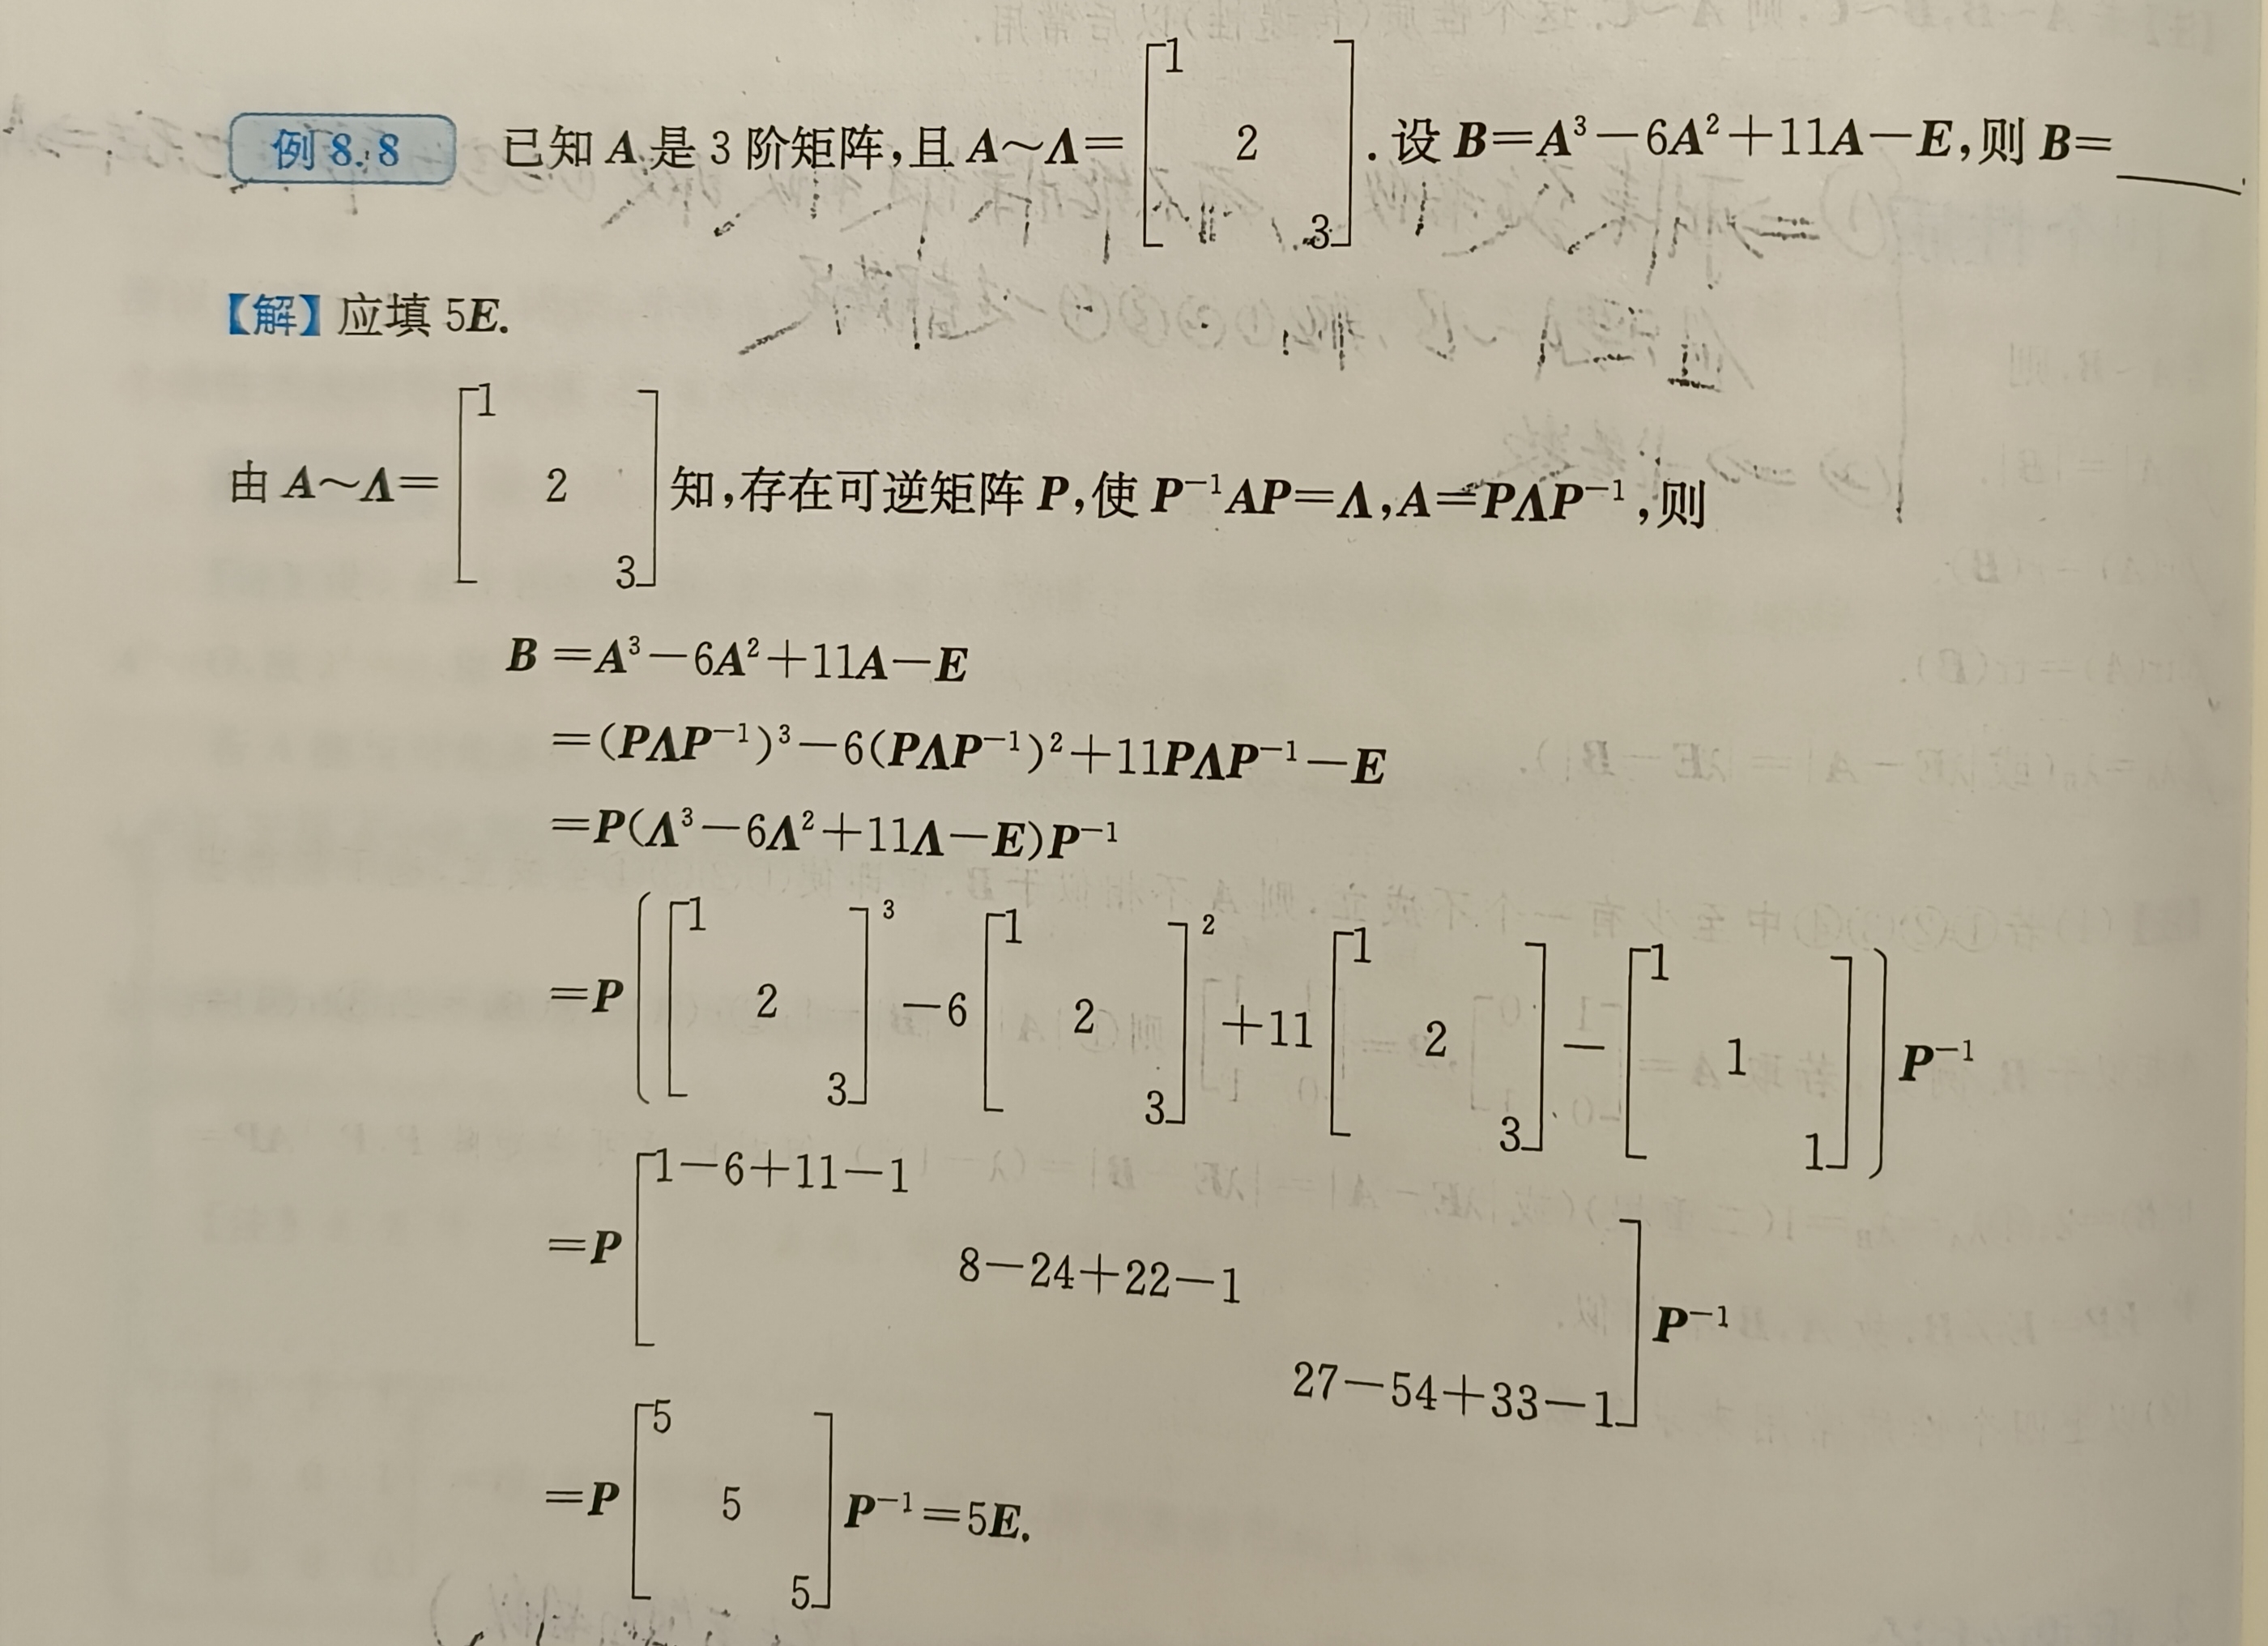 例 8.8 已知 A 是 3 阶矩阵,且 A～Λ=[1 2 3]. 设 B=A³−6A²+11A−E,则 B=____
【解】应填 5E.
由 A～Λ=[1 2 3]知,存在可逆矩阵 P,使 P⁻¹AP=Λ,A=PΛP⁻¹,则
B=A³−6A²+11A−E
=(PΛP⁻¹)³−6(PΛP⁻¹)²+11PΛP⁻¹−E
=P(Λ³−6Λ²+11Λ−E)P⁻¹
=P([1 2 3]³−6[1 2 3]²+11[1 2 3]−[1 1 1])P⁻¹
=P[1−6+11−1 8−24+22−1 27−54+33−1]P⁻¹
=P[5 5 5]P⁻¹=5E.